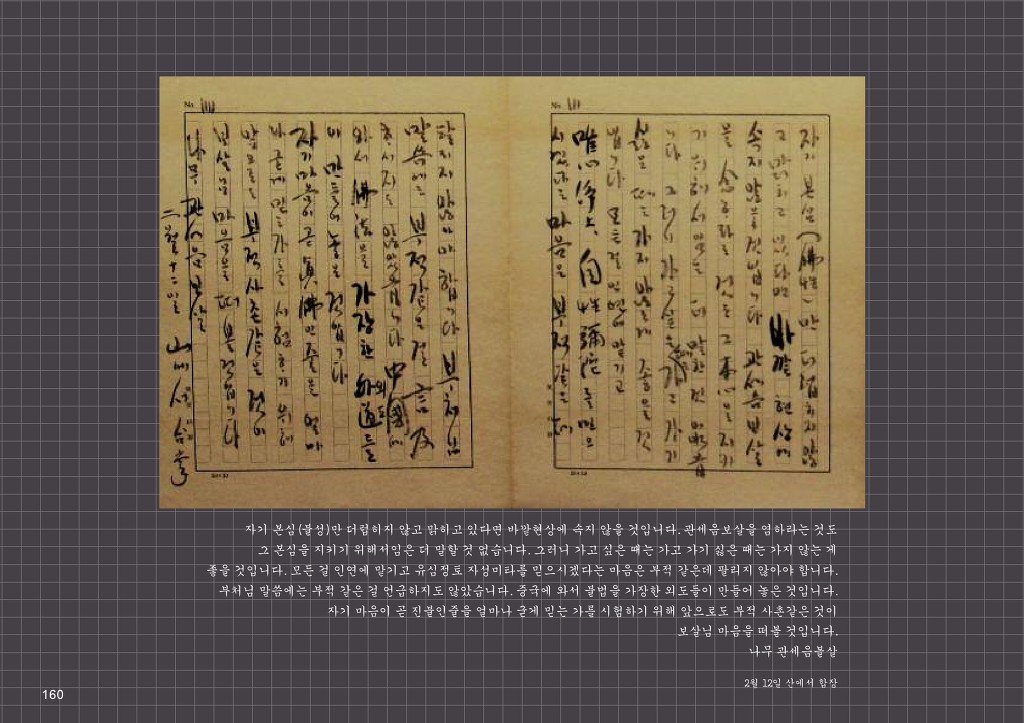 No.
자기 본심(佛性)만 더럽히지 않
고 맑히고 있다면 바깥 현상에
속지 않을 것입니다 관세음보살
을 念하라는 것도 그 本心을 지키
기 위해서임은 더 말할 것 없습
니다 그러니 가고 가기
싫은 때는 가지 않는게 좋을 것
입니다 모든 걸 인연에 맡기고
唯心淨土 自性彌陀를 믿으
시겠다는 마음은 부적 같은 데
No.
팔리지 않아야 합니다 부처님
말씀에는 부적 같은 걸 言及
하시지도 않았습니다 中國에
와서 佛法을 가장한 外道들
이 만들어 놓은 것입니다
자기 마음이 곧 眞佛인 줄을 얼마
나 굳게 믿는 가를 시험하기 위해
앞으로도 부적 사촌 같은 것이
보살님 마음을 떠 볼 것입니다
나무 관세음보살
二월 十二일 山에서
자기 본심(불성)만 더럽히지 않고 맑히고 있다면 바깥현상에 속지 않을 것입니다. 관세음보살을 염하라는 것도
그 본심을 지키기 위해서임은 더 말할 것 없습니다. 그러니 가고 싶은 때는 가고 가기 싫은 때는 가지 않는 게
좋을 것입니다. 모든 걸 인연에 맡기고 유심정토 자성미타를 믿으시겠다는 마음은 부적 같은데 팔리지 않아야 합니다.
부처님 말씀에는 부적 같은 걸 언급하지도 않았습니다. 중국에 와서 불법을 가장한 외도들이 만들어 놓은 것입니다.
자기 마음이 곧 진불인줄을 얼마나 굳게 믿는 가를 시험하기 위해 앞으로도 부적 사촌같은 것이
보살님 마음을 떠볼 것입니다.
나무 관세음볼살
2월 12일 산에서 합장
160